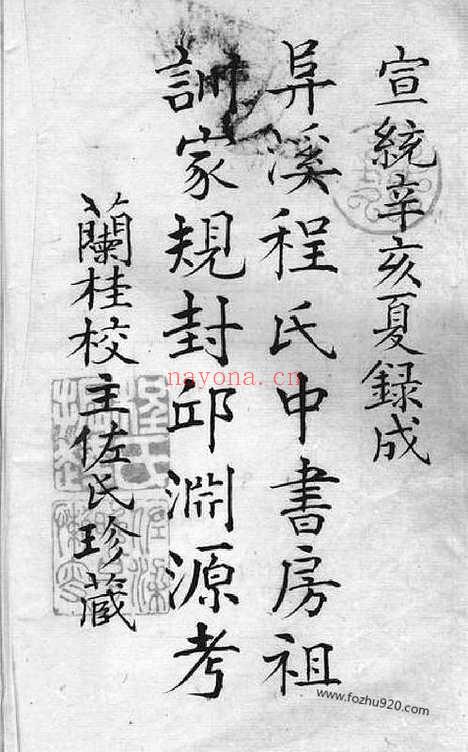 宣統辛亥夏録成
阜溪程氏中書房祖
訓家規封邱淵源考
蘭桂校主佐氏珍蔵
nayona.cn
www.fozhu920.com